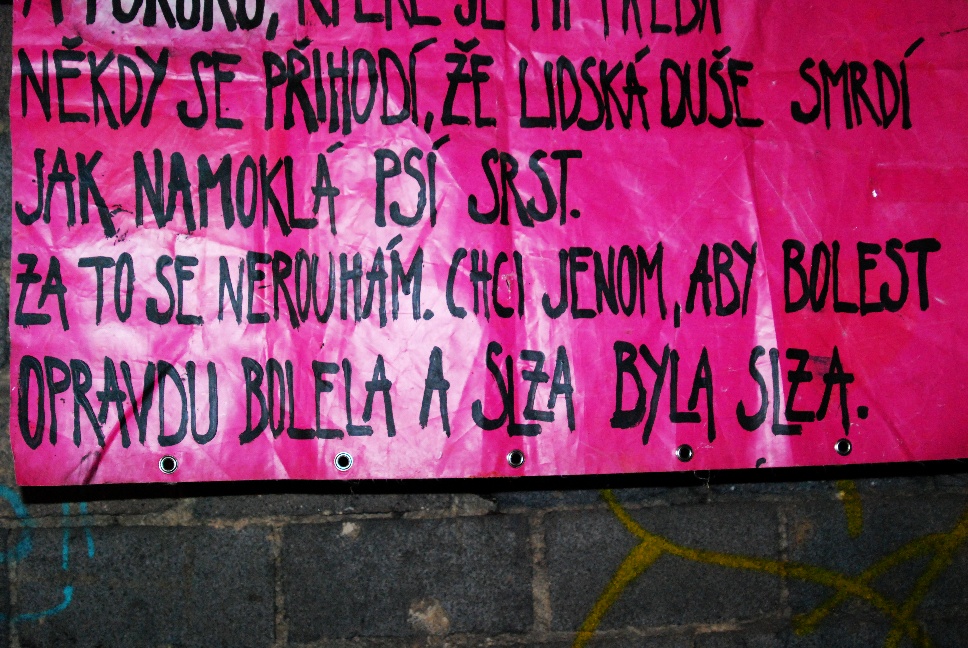 A POKORU, KTERÉ JE MI TŘEBA
NĚKDY SE PŘIHODÍ, ŽE LIDSKÁ DUŠE SMRDÍ
JAK NAMOKLÁ PSÍ SRST.
ZA TO SE NEROUHÁM. CHCI JENOM, ABY BOLEST
OPRAVDU BOLELA A SLZA BYLA SLZA.